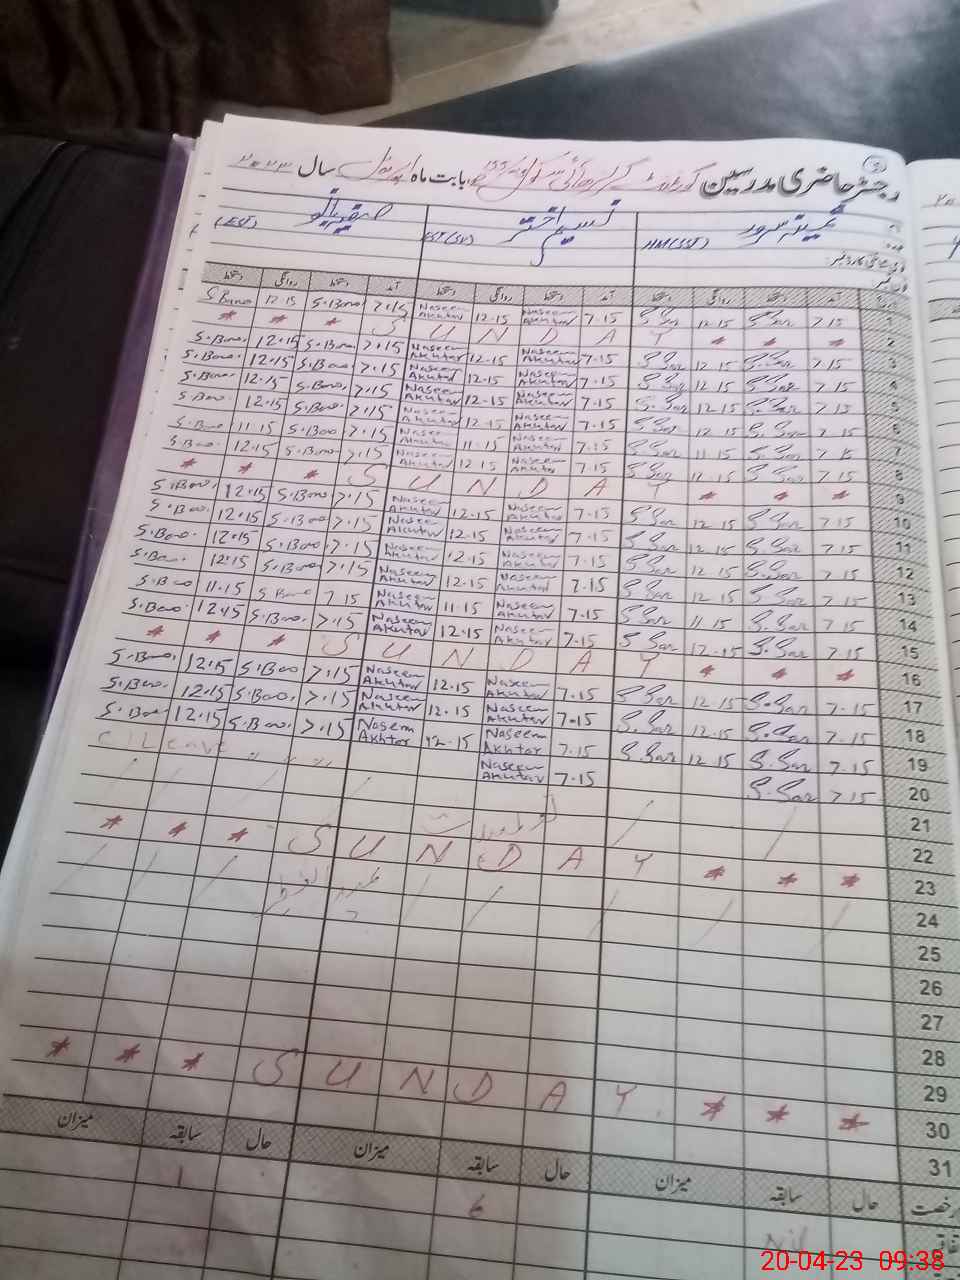 رجسٹر حاضری مدرسین گورنمنٹ گرلز ہائی سکول بابت ماہ اپریل سال ۲۰۲۳
نگینہ سرور نسیم اختر صفیہ بانو
HM(SST) EST(SV) (EST)
تاریخ آمد دستخط روانگی دستخط آمد دستخط روانگی دستخط آمد دستخط روانگی دستخط
1 7.15 S.Sar 12.15 S.Sar 7.15 Naseem Akhtar 12.15 Naseem Akhtar 7.15 S.Bano 12.15 S.Bano
2 * * * S U N D A Y * * *
3 7.15 S.Sar 12.15 S.Sar 7.15 Naseem Akhtar 12.15 Naseem Akhtar 7.15 S.Bano. 12.15 S.Bano.
4 7.15 S.Sar 12.15 S.Sar 7.15 Naseem Akhtar 12.15 Naseem Akhtar 7.15 S.Bano. 12.15 S.Bano.
5 7.15 S.Sar 12.15 S.Sar 7.15 Naseem Akhtar 12.15 Naseem Akhtar 7.15 S.Bano. 12.15 S.Bano.
6 7.15 S.Sar 12.15 S.Sar 7.15 Naseem Akhtar 12.15 Naseem Akhtar 7.15 S.Bano. 12.15 S.Bano.
7 7.15 S.Sar 11.15 S.Sar 7.15 Naseem Akhtar 11.15 Naseem Akhtar 7.15 S.Bano. 11.15 S.Bano.
8 7.15 S.Sar 12.15 S.Sar 7.15 Naseem Akhtar 12.15 Naseem Akhtar 7.15 S.Bano. 12.15 S.Bano.
9 * * * S U N D A Y * * *
10 7.15 S.Sar 12.15 S.Sar 7.15 Naseem Akhtar 12.15 Naseem Akhtar 7.15 S.Bano. 12.15 S.Bano.
11 7.15 S.Sar 12.15 S.Sar 7.15 Naseem Akhtar 12.15 Naseem Akhtar 7.15 S.Bano. 12.15 S.Bano.
12 7.15 S.Sar 12.15 S.Sar 7.15 Naseem Akhtar 12.15 Naseem Akhtar 7.15 S.Bano. 12.15 S.Bano.
13 7.15 S.Sar 12.15 S.Sar 7.15 Naseem Akhtar 12.15 Naseem Akhtar 7.15 S.Bano. 12.15 S.Bano.
14 7.15 S.Sar 11.15 S.Sar 7.15 Naseem Akhtar 11.15 Naseem Akhtar 7.15 S.Bano 11.15 S.Bano
15 7.15 S.Sar 12.15 S.Sar 7.15 Naseem Akhtar 12.15 Naseem Akhtar 7.15 S.Bano. 12.15 S.Bano.
16 * * * S U N D A Y * * *
17 7.15 S.Sar 12.15 S.Sar 7.15 Naseem Akhtar 12.15 Naseem Akhtar 7.15 S.Bano 12.15 S.Bano.
18 7.15 S.Sar 12.15 S.Sar 7.15 Naseem Akhtar 12.15 Naseem Akhtar 7.15 S.Bano. 12.15 S.Bano.
19 7.15 S.Sar 12.15 S.Sar 7.15 Naseem Akhtar 12.15 Naseem Akhtar 7.15 S.Bano. 12.15 S.Bano
20 7.15 S.Sar 7.15 Naseem Akhtar Leave
21
22
23 * * * S U N D A Y * * *
24
25
26
27
28
29
30 * * * S U N D A Y * * *
31
رخصت حال سابقہ میزان حال سابقہ میزان حال سابقہ میزان
Nil 6 1
20-04-23 09:38